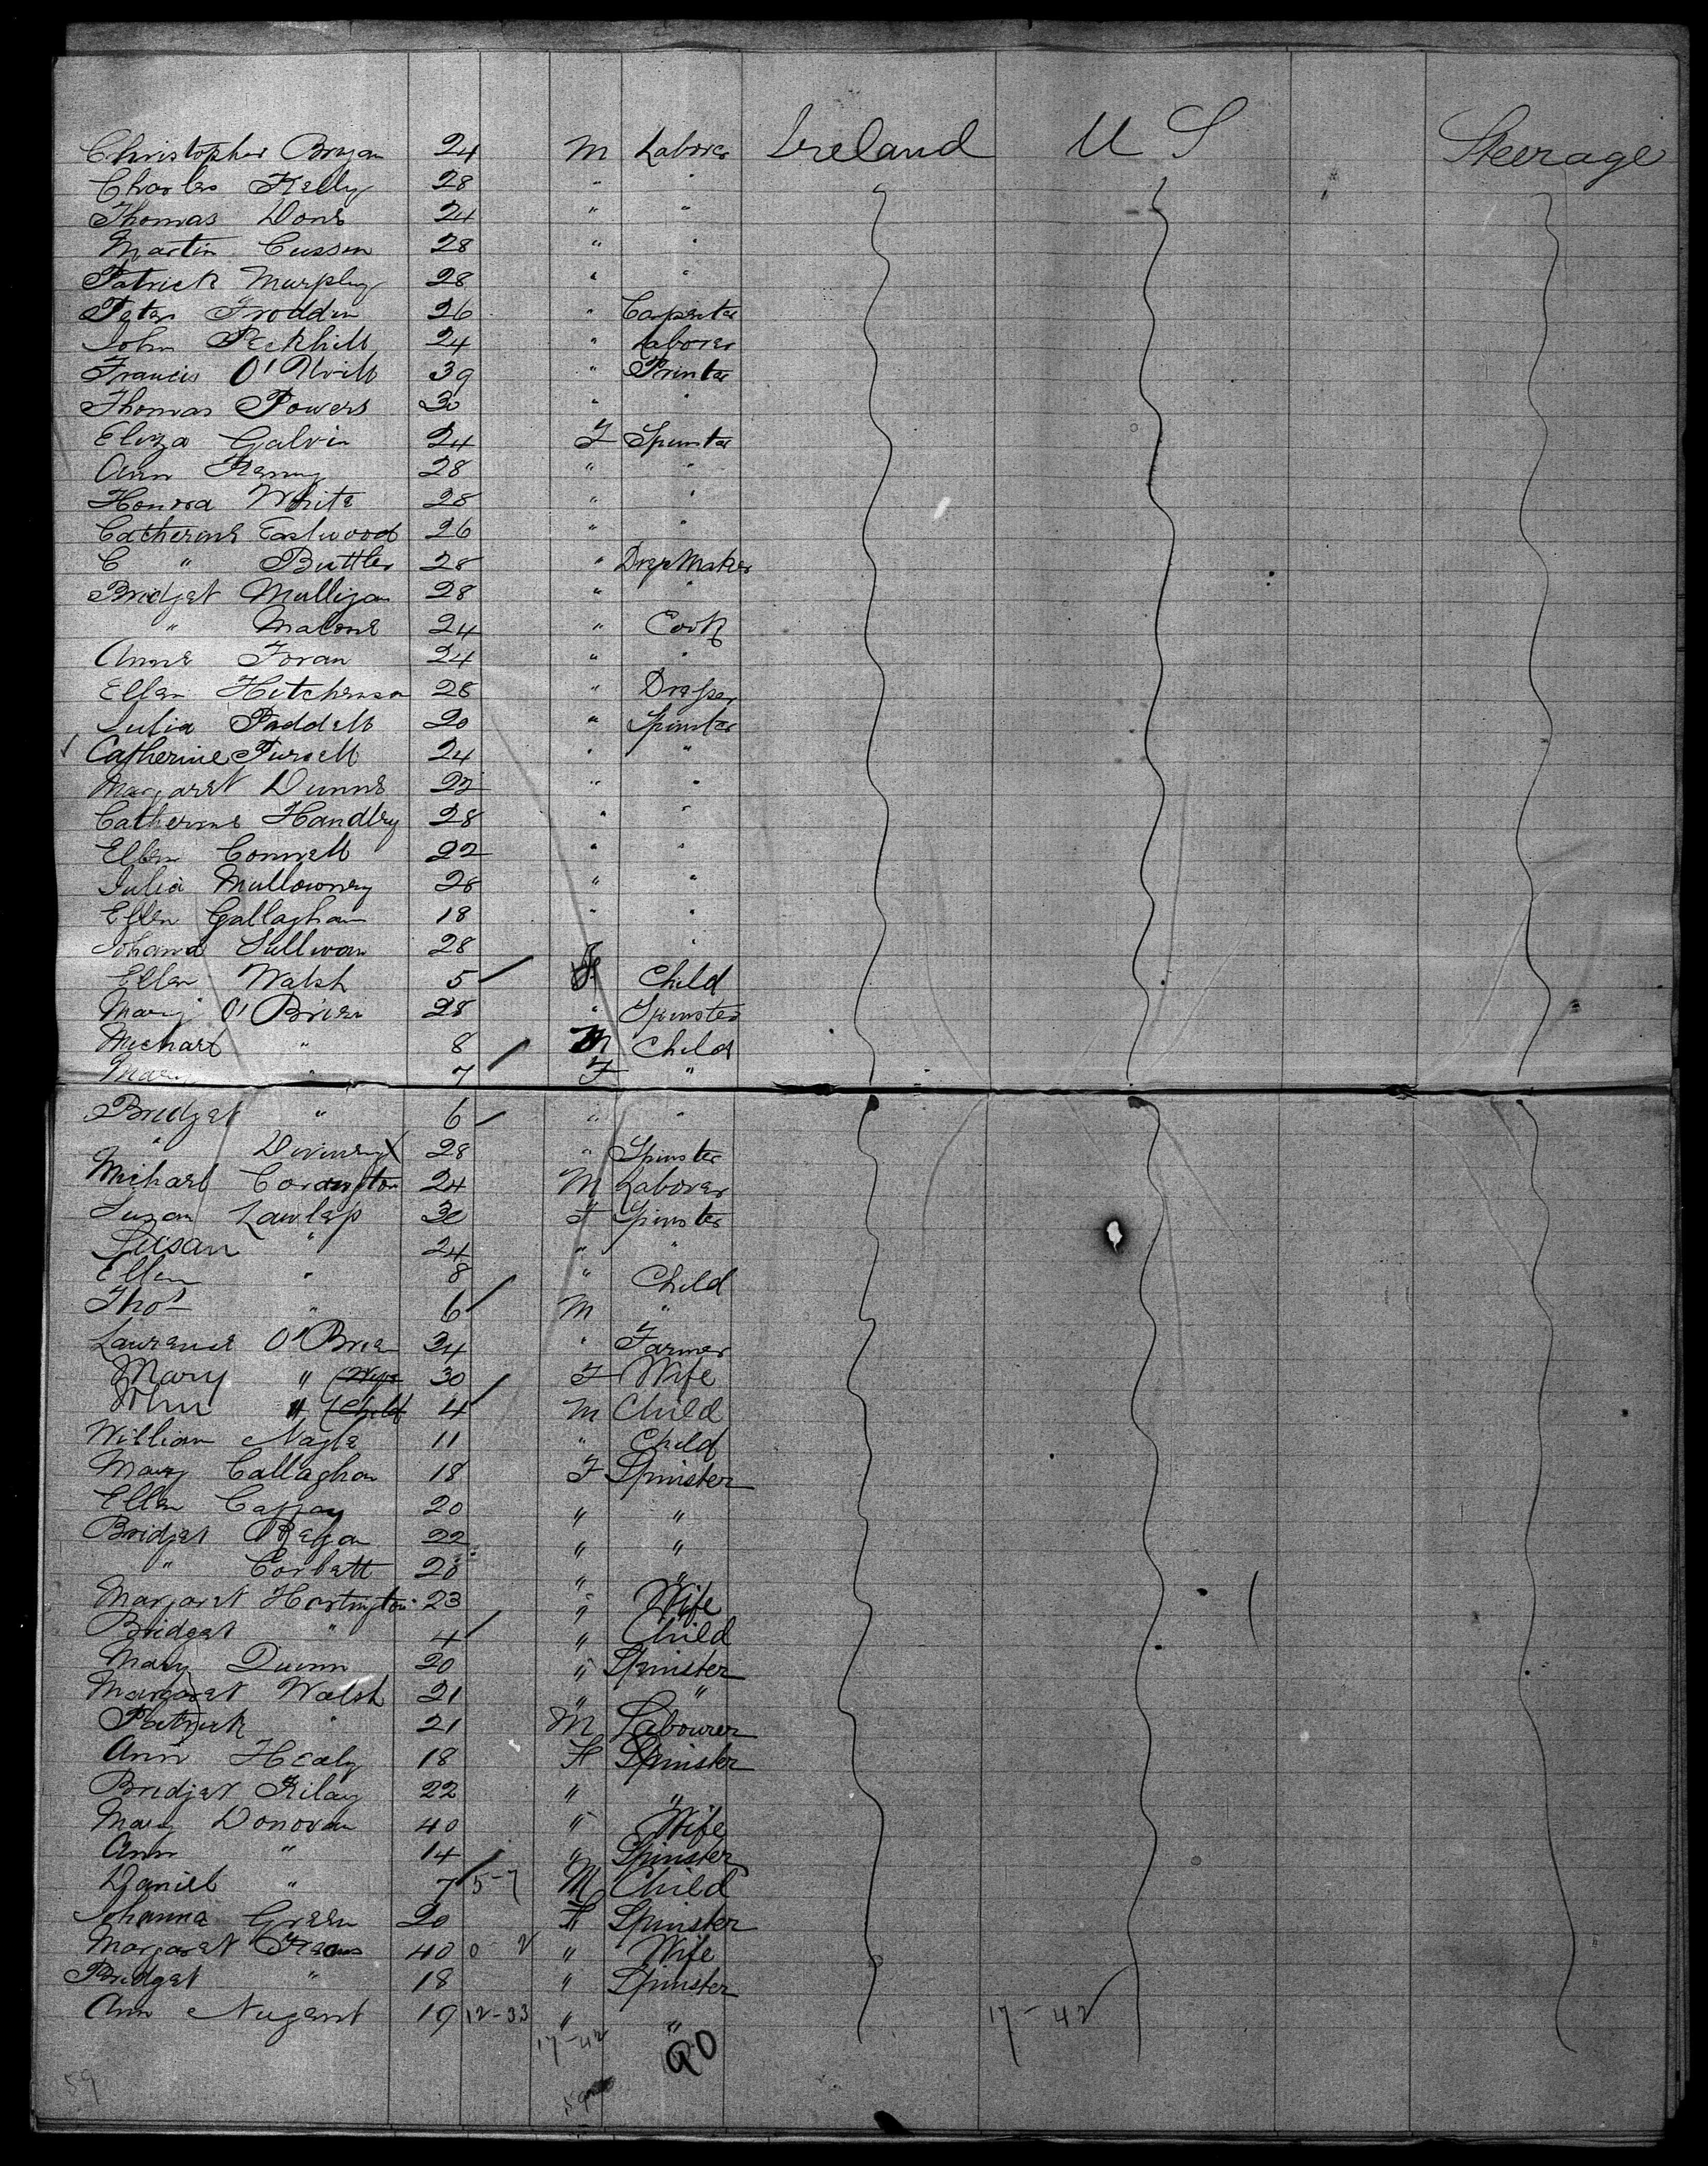 Christopher Bryan 24 M Laborer Ireland U S Steerage
Charles Kelly 28 " "
Thomas Done 24 " "
Martin Cussen 28 " "
Patrick Murphy 28 " "
Peter Froddin 26 " Carpenter
John 24 " Laborer
Francis O'Neill 39 " Printer
Thomas Powers 30 " "
Eliza Galvin 24 F Spinster
Ann Kenny 28 " "
Honora White 28 " "
Catherine Eastwood 26 " "
C " Buttler 28 " DressMaker
Bridget Mulligan 28 " "
" Malone 24 " Cook
Anne Foran 24 " "
Ellen Hitchenson 28 "
Julia Paddell 20 " Spinster
Catherine Pursell 24 " "
Margaret Dunne 22 " "
Catherine Handley 28 " "
Ellen Connell 22 " "
Julia Mullowney 28 " "
Ellen Gallaghan 18 " "
Johana Sullivan 28 "
Ellen Walsh 5 F Child
Mary O'Brien 28 " Spinster
Michael " 8 M Child
Mary " 7 F "
Bridget " 6 " "
" Deviney 28 " Spinster
Michael 24 M Laborer
Suzan Lawless 30 F Spinster
Susan " 24 " "
Ellen " 8 " Child
Thos " 6 M "
Lawrence O'Brien 34 " Farmer
Mary " (Wife 30 F Wife
John " (Child 4 M Child
William Nagle 11 " Child
Mary Callaghan 18 F Spinster
Ellen 20 " "
Bridget Regan 22 " "
" Corbett 20 " "
Margaret Hartington 23 " Wife
Bridget " 4 " Child
Mary Quinn 20 " Spinster
Margaret Walsh 21 " "
Patrick " 21 M Labourer
Ann Healy 18 F Spinster
Bridget Riley 22 " "
Mary Donovan 40 " Wife
Ann " 14 " Spinster
Daniel " 7 5-7 M Child
Johanna Green 20 F Spinster
Margaret 40 0-2 " Wife
Bridget " 18 " Spinster
Ann Nugent 19 12-33 " "
17-42 17-42
90
59